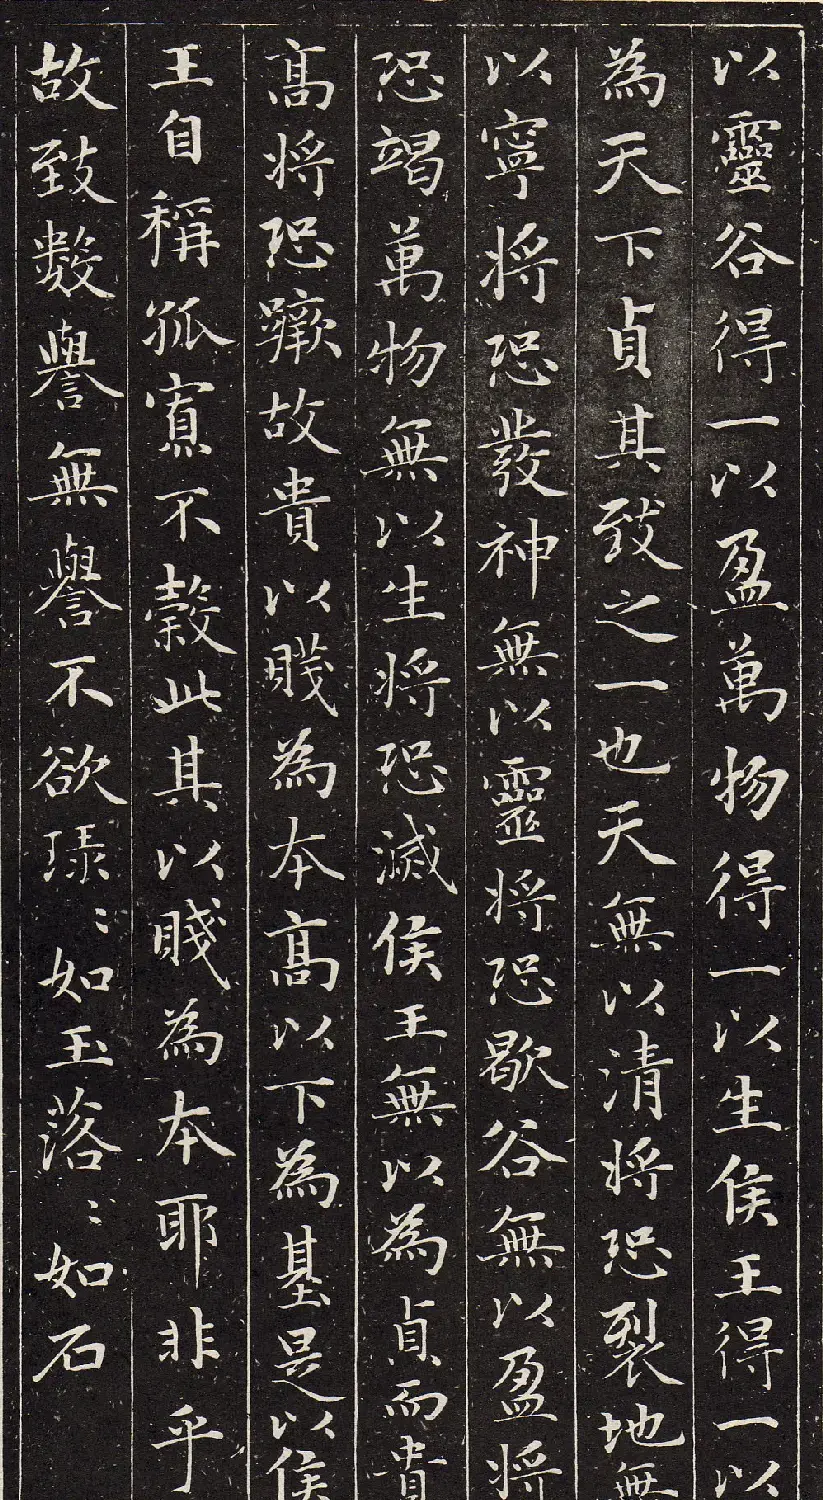 以靈谷得一以盈萬物得一以生侯王得一以
為天下貞其致之一也天無以清將恐裂地無
以寧將恐發神無以靈將恐歇谷無以盈將
恐竭萬物無以生將恐滅侯王無以為貞而貴
髙將恐蹶故貴以賤為本髙以下為基是以侯
王自稱孤寡不榖此其以賤為本耶非乎
故致數譽無譽不欲琭〻如玉落〻如石